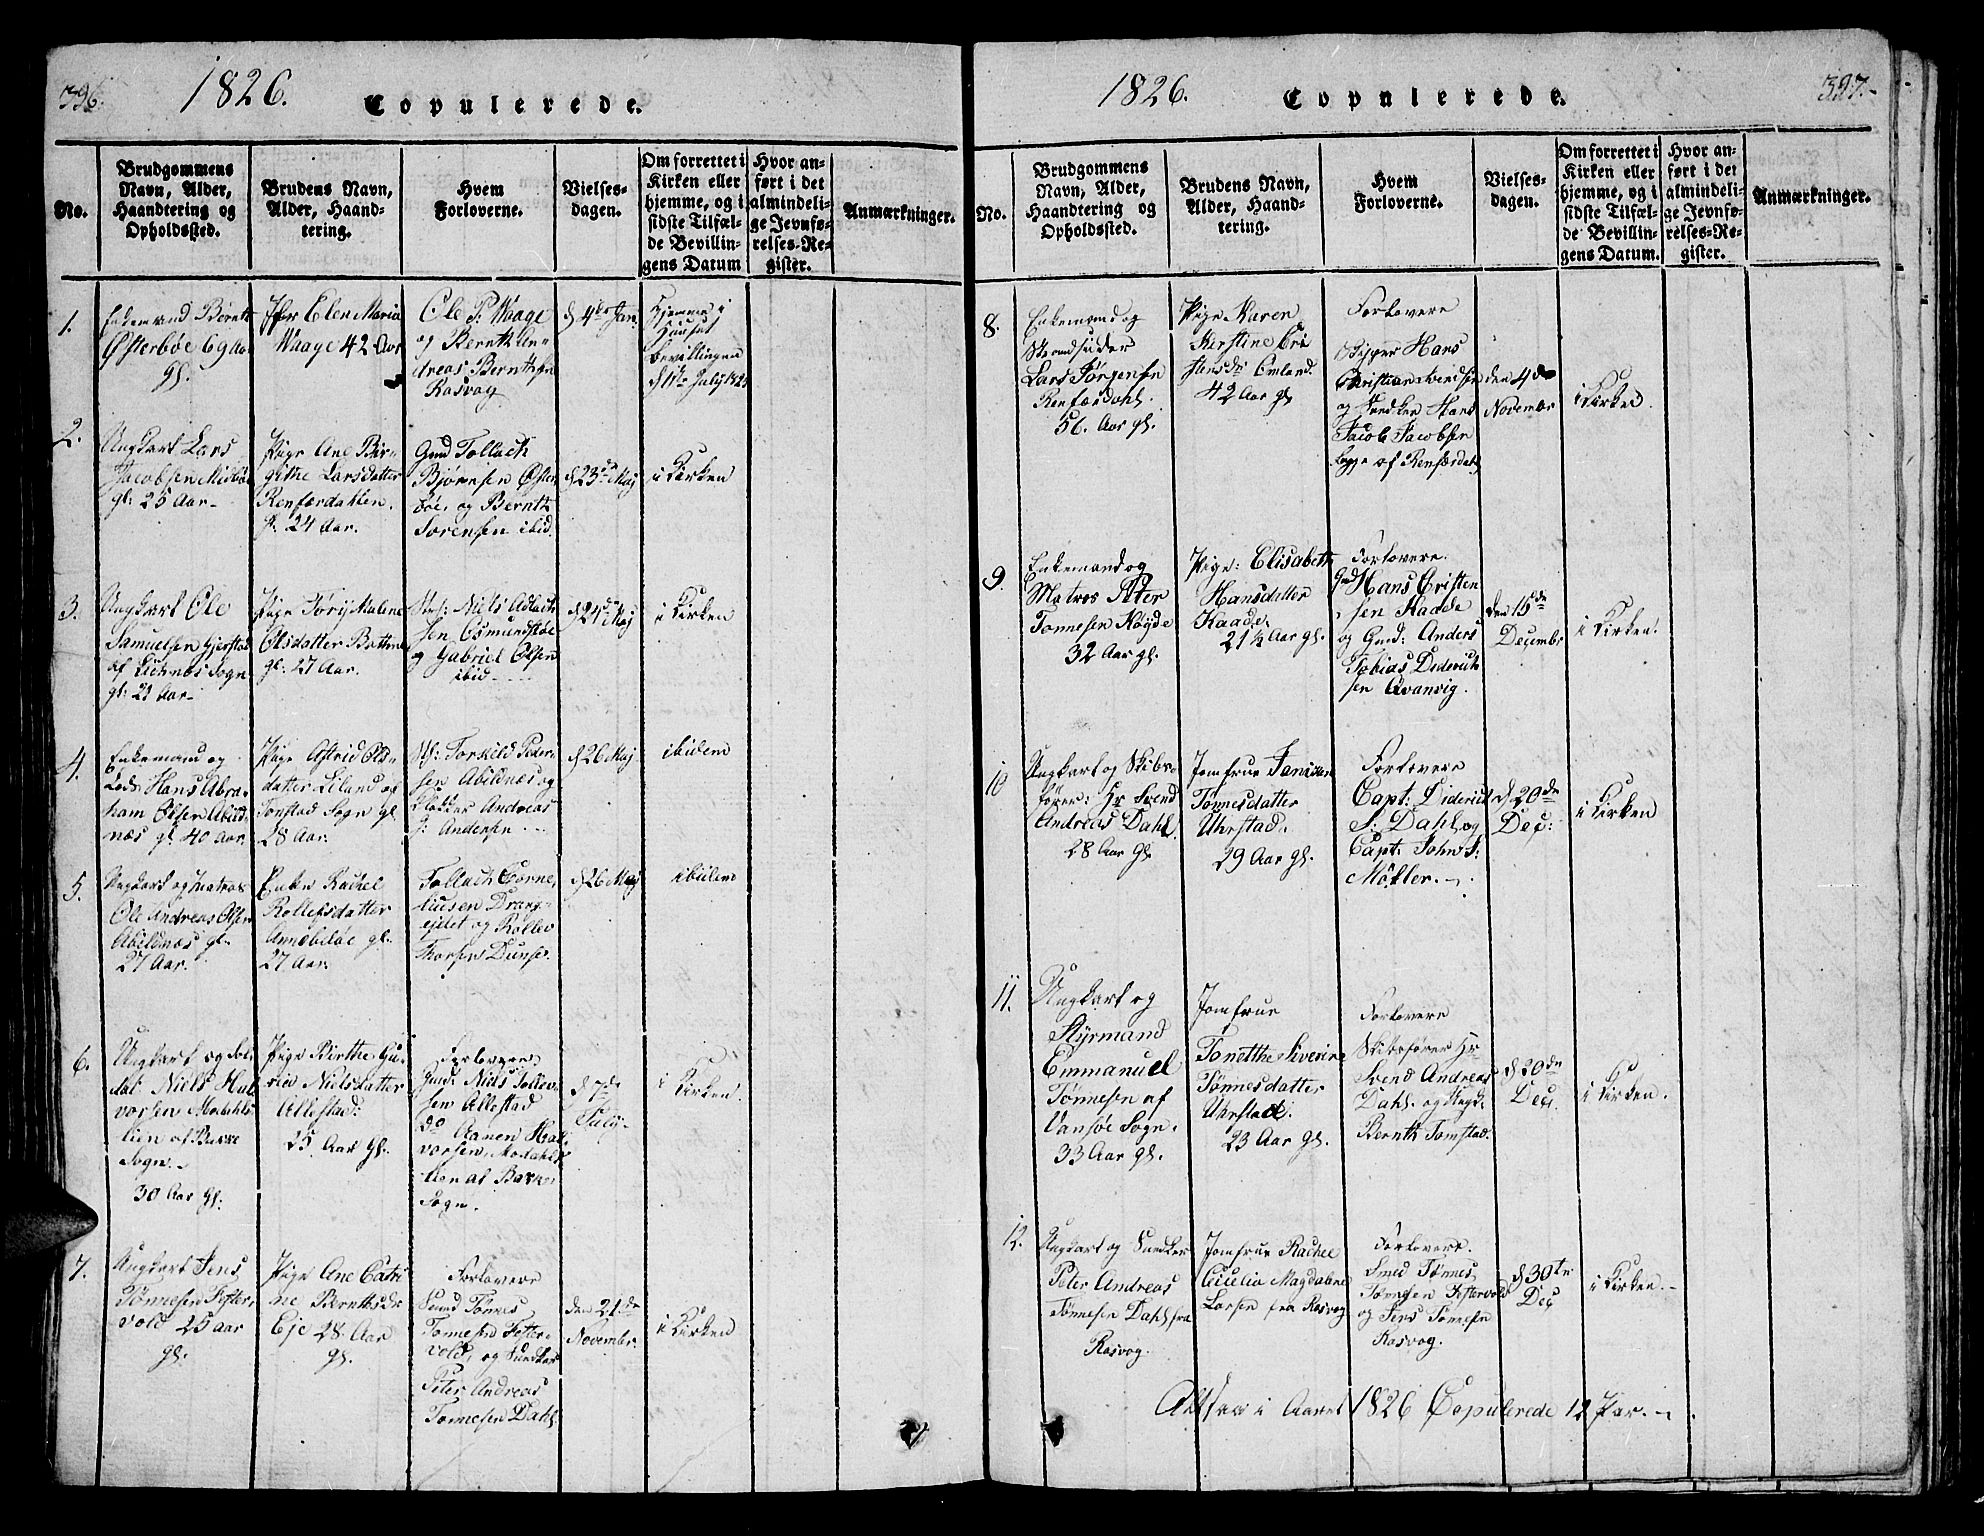 396.
1826.
Copulerede.
No.
Brudgommens Navn, Alder, Haandtering og Opholdssted.
Brudens Navn, Alder, Haandtering.
Hvem Forloverne.
Vielsesdagen.
Om forrettet i Kirken eller hjemme, og i sidste Tilfælde Bevillingens Datum
Hvor anført i det almindelige Jevnførelses-Register.
Anmærkninger.
1.
Enkemand Bernth
Østerbøe 69 Aar
gl.
Elen Maria
Waage 42 Aar
Ole P. Waage
og Bernth An-
dreas Bernthsen
Rasvog
d 4de Jan.
Hjemme i
Huuset
bevillingen
2.
Ungkarl Lars
Jacobsen
gl: 25 Aar-
Pige Ane Bir-
githe Larsdatter
Renfærdahlen.
gl. 24 Aar.
Gmd Tollach
Bjørnsen Øster
bøe, og Bernth
Sørensen ibid.
d 23de Maj
i Kirken
3.
Ungkarl Ole
Samuelsen Gjerstad
af Liknæs Sogn
gl: 23 Aar-
Pige Tørrij Malene
Olsdatter Botten
gl: 27 Aar.
Niels Adlach
sen Osmundbøe
og Gabriel Olsen
ibid
d 24de Maj
i Kirken
4.
Enkemand og
Lods Hans Abra-
ham Olsen Abild
næs gl. 40 Aar.
Pige Astrid Ols-
datter Liland og
Tonstad Sogn gl
28 Aar.
Torkild Peder-
sen Abildnæs og
Klokker Andreas
G: Andersen
d 26 Maj
ibidem
5.
Ungkarl og Matros
Ole Andreas Olsen
Abildnæs gl.
27 Aar.
Enke Rachel
Rollefsdatter
Annabeløe gl.
27 Aar.
Tollach Corne-
liusen Drang-
ejdet og Rollev
Thorsen Dunse.
d 26 Maj
ibidem
6.
Ungkarl og Sol-
dat Niels Hal-
vorsen Modahls
lien af Bakke
Sogn.-
30 Aar gl:
Pige Birthe Gu-
rie Nielsdatter
Allestad:
25 Aar gl.
Forlovere
Gmd: Niels Tollev-
sen Allestad
do Aanen Hal-
vorsen, Modahls
lien af Bakke
Sogn.
d 7de
July.
i Kirken.
7.
Ungkarl Jens
Tønnesen Fester-
vold 25 aar
gl.
Pige Ane Catri
ne Berntsdr
Eje 28 Aar
gl.
Forlovere
Smed Tønnes
Tønnesen Fester-
vold, og Snedker
Peter Andreas
Tønnesen Dahl
den 21de
November.
i Kirken
1826.
Copulerede.
397.
No.
Brudgommens Navn, Alder, Haandtering og Opholdssted.
Brudens Navn, Alder, Haandtering.
Hvem Forloverne.
Vielsesdagen.
Om forrettet i Kirken eller hjemme, og i sidste Tilfælde Bevillingens Datum.
Hvor anført i det almindelige Jevnførelses-Register.
Anmærkninger.
8.
Enkemand og
Strandsidder
Lars Jørgensen
Renfærdahl.
56. Aar gl.
Pige Karen
Kirstine Cri
stansdr Omland.
42 Aar gl
Forlovere
Skipper Hans
Christian Svendsen
og Snedker Hans
Jacob Jacobsen
begge af Renfærdahl
den 4de
November
i Kirken.
9.
Enkemand og
Matros Peter
Tønnesen Nøyde
32 Aar gl.
Pige: Elisabeth
Hansdatter
Kaade.
21½ Aar gl.
Forlovere.
Gmd Hans Cristen
sen Kaade
og Gmd: Anders
Tobias Diderich
sen Qvanvig.
den 15de
Decembr
i Kirken.
10
Ungkarl og Skibs-
fører: Hr Svend
Andreas Dahl.
28 Aar gl
Jomfrue
Tønnesdatter
Uhrstad.
29 Aar gl.
Forlovere
Capt: Diderich
S: Dahl og
Capt. John S:
Møller.
d 20de
Dec:
i Kirken
11.
Ungkarl og
Styrmand
Emmanuel
Tønnesen af
Vansøe Sogn.
33 Aar gl.
Jomfrue
Tonetthe Siverine
Tønnesdatter
Uhrstad.
23 Aar gl.
Forlovere
Skibsfører Hr
Svend Andreas
Dahl. og
Bernth Tomstad.
d 20de
Dec.
i Kirken.
12.
Ungkarl og Snedker
Peter Andreas
Tønnesen Dahl fra
Rasvog.
Jomfrue Rachel
Cecilia Magdalene
Larsen fra Rasvog
Forlovere.
Smed Tønnes
Tønnesen Festervold
og Jens Tønnesen
Rasvog.
d 30te
Dec
i Kirken.-
Altsaa i Aaret 1826 Copulerede 12 Par.